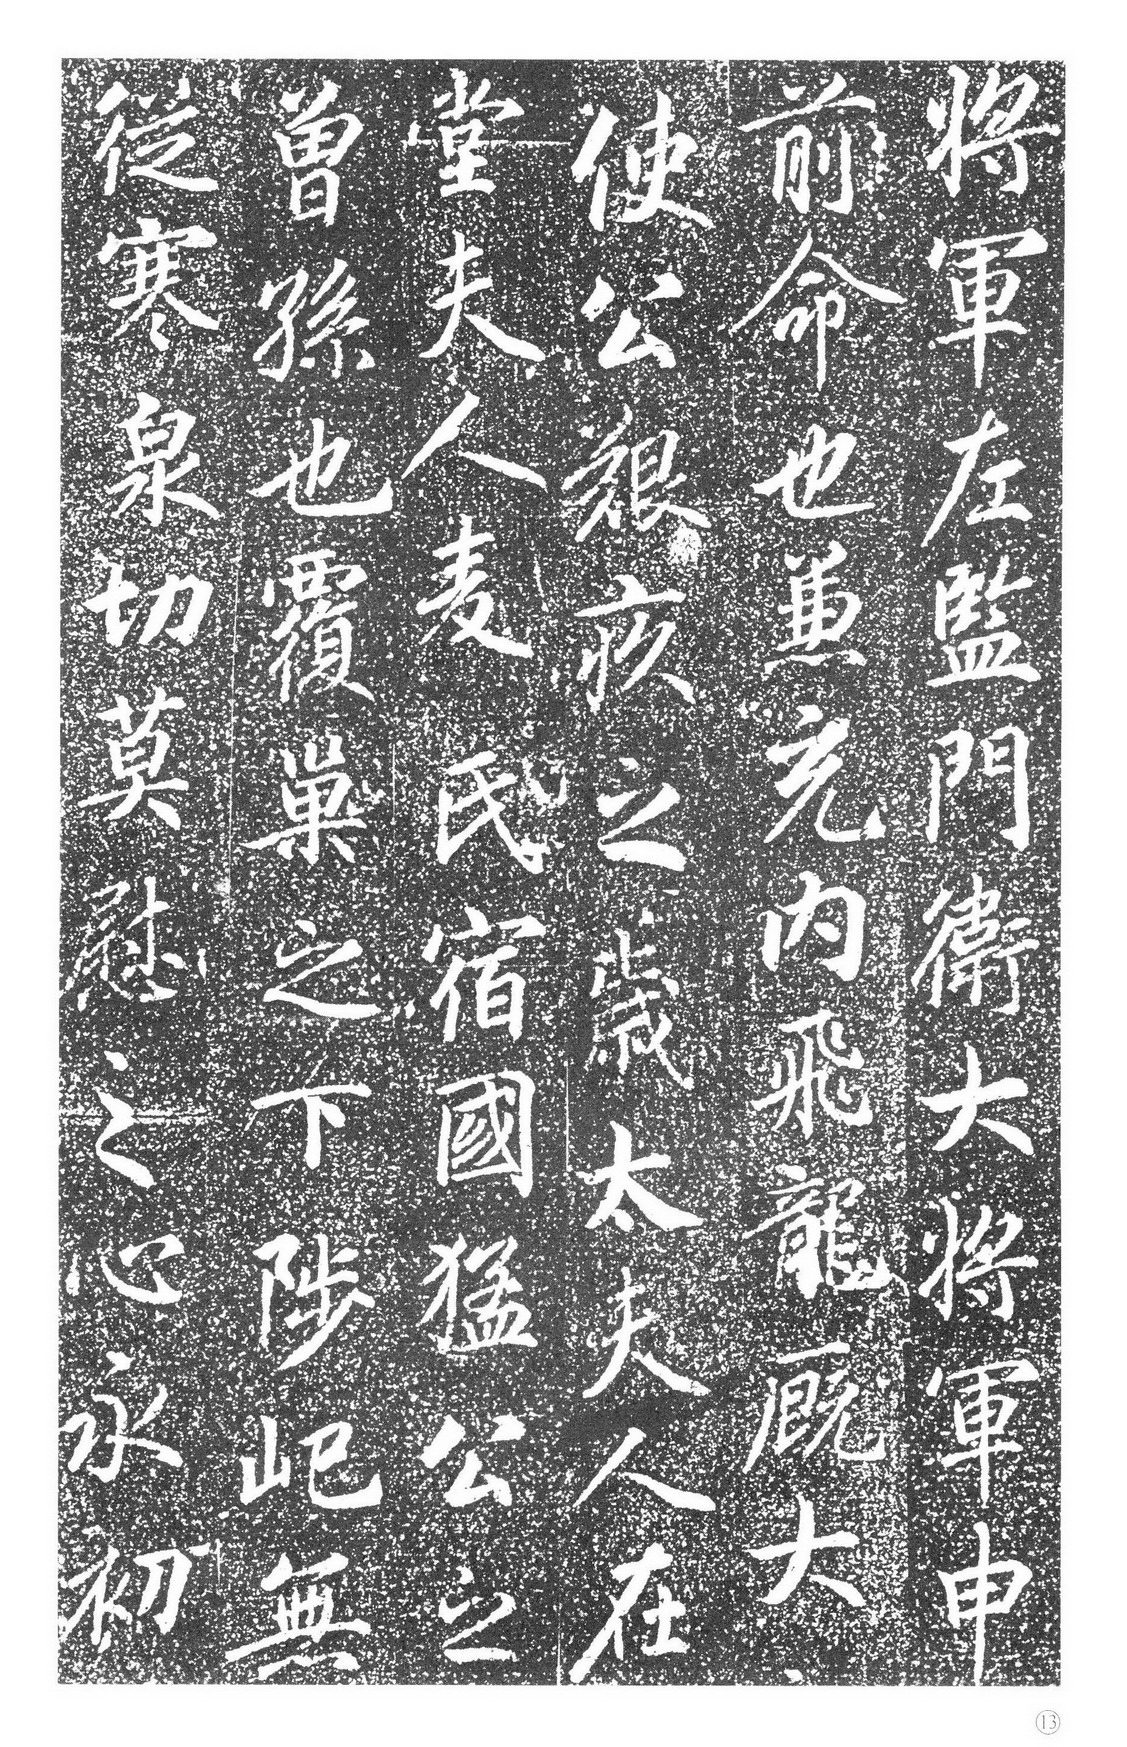 將軍左監門衛大將軍申
前命也兼充内飛龍厩大
使公艱疚之歲太夫人在
堂夫人麦氏宿國猛公之
曾孫也覆巢之下陟屺無
從寒泉切莫慰之心永初
⑬